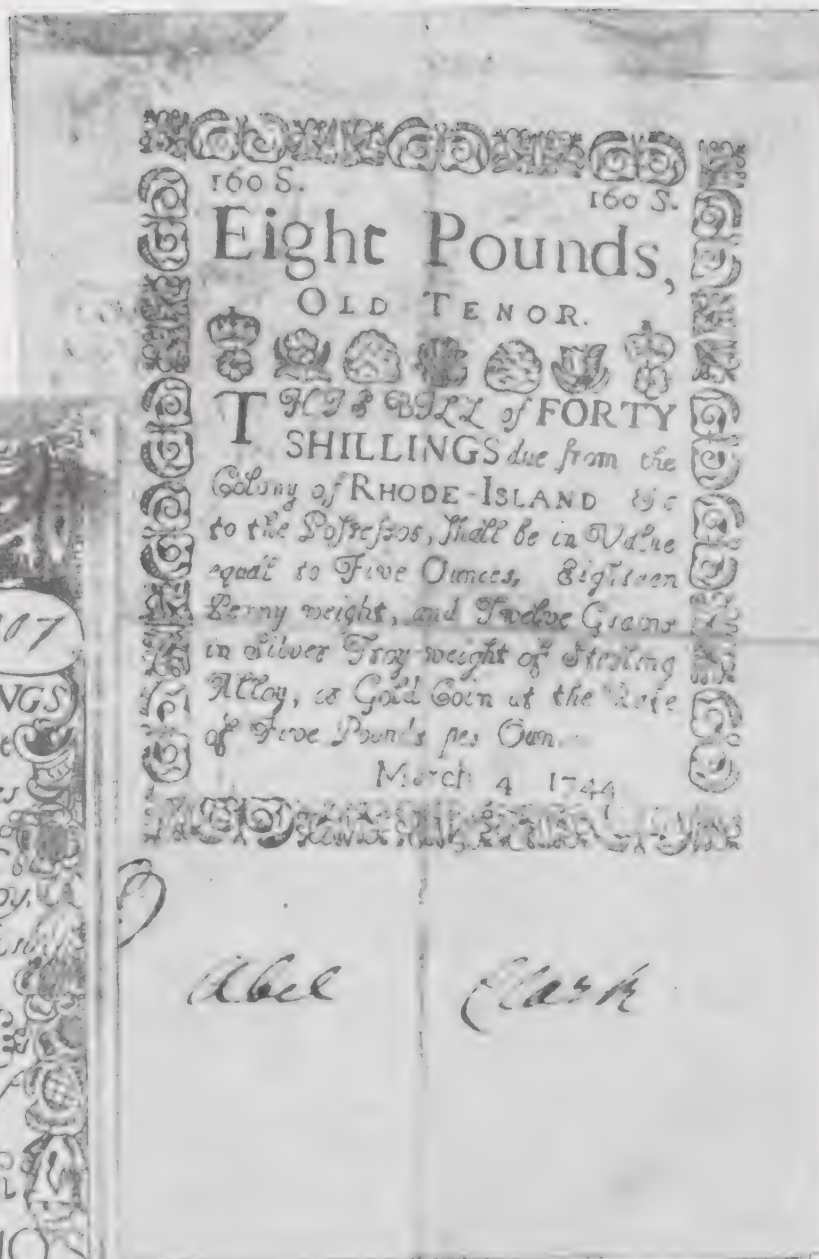 160 S.
160 S.
Eight Pounds,
OLD TENOR.
THIS BILL of FORTY
SHILLINGS due from the
Colony of RHODE-ISLAND &c
to the Possessor, shall be in Value
equal to Five Ounces, Eighteen
Penny weight, and Twelve Grams
in Silver Troy-weight of Sterling
Alloy, or Gold Coin at the Rate
of Five Pounds per Oun.
March 4 1744
Abel Clark
107
NGS